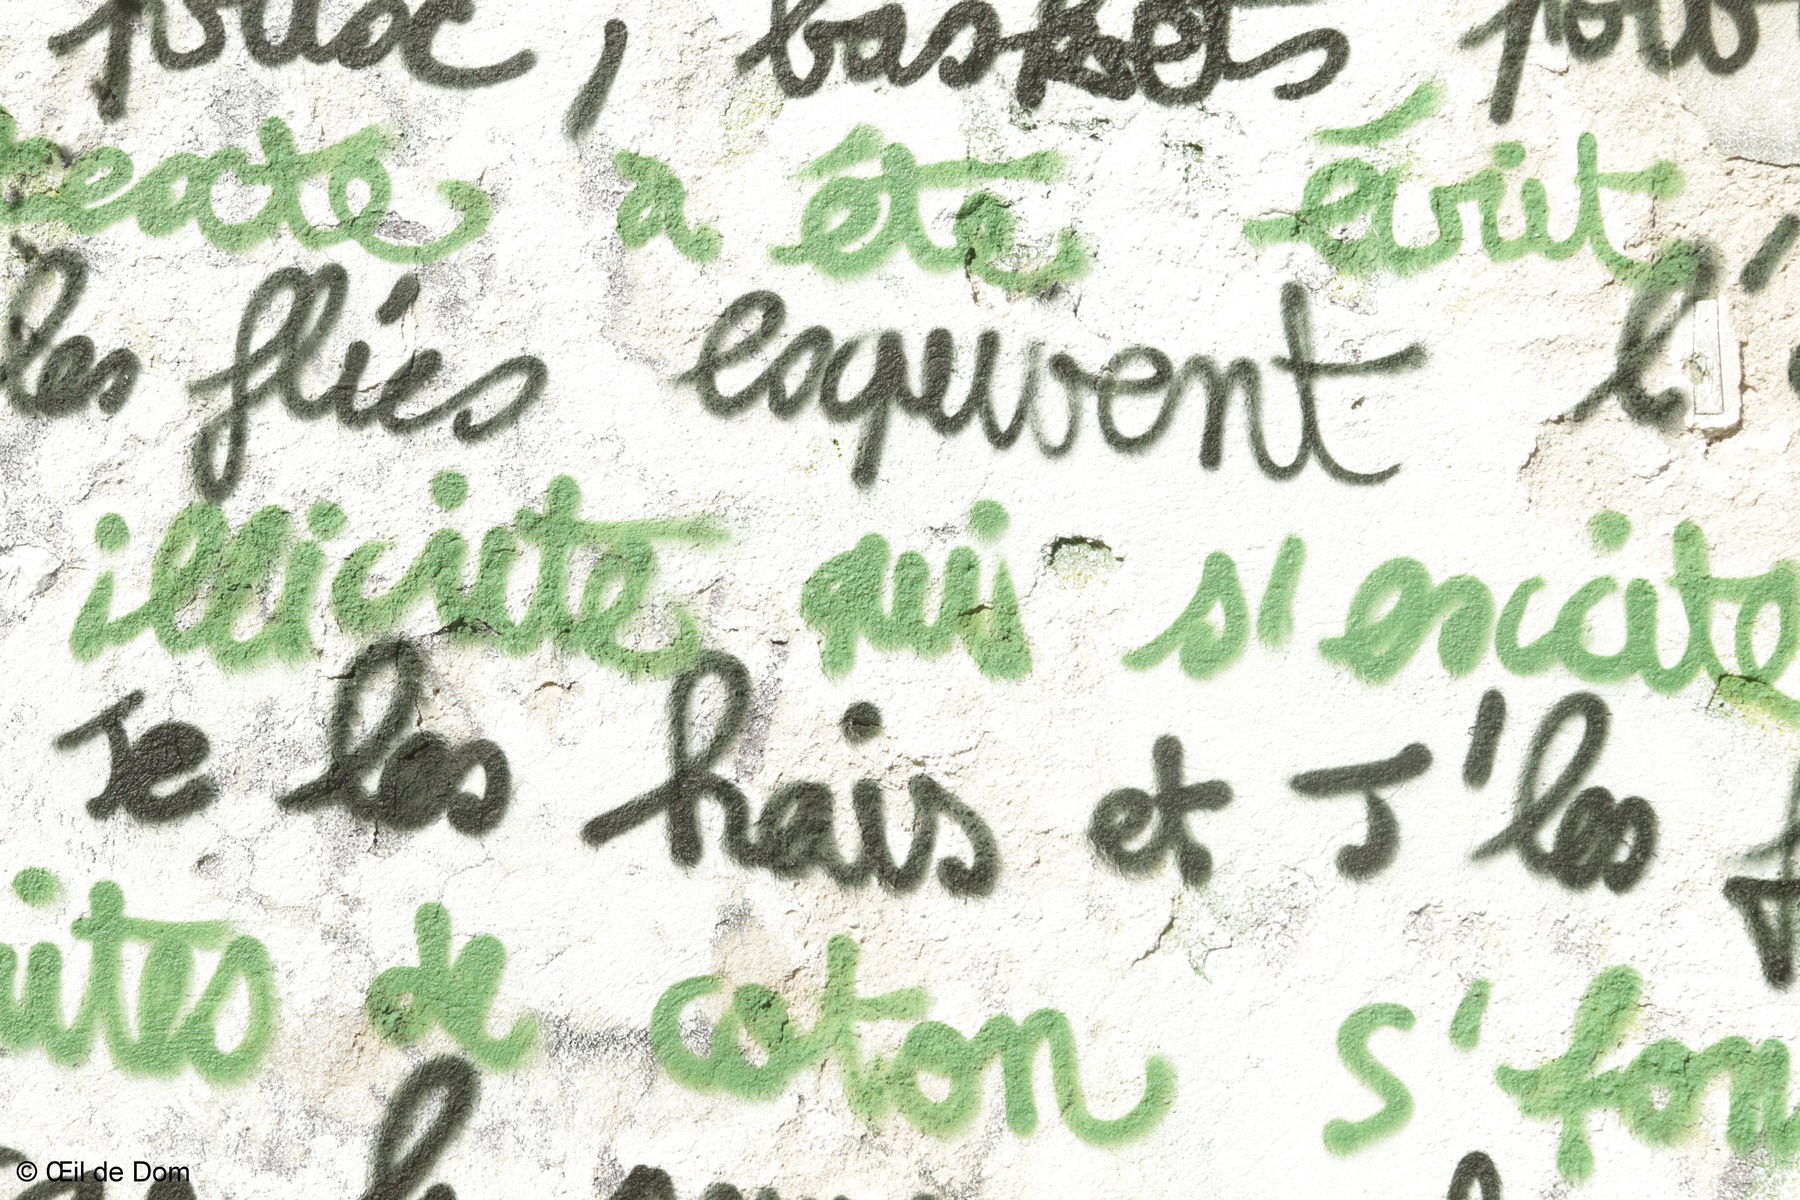 , baskets
texte a été écrit,
les flics esquivent l'
illicite qui s'excite
Je les hais et J'les
de coton s'fon
© Œil de Dom